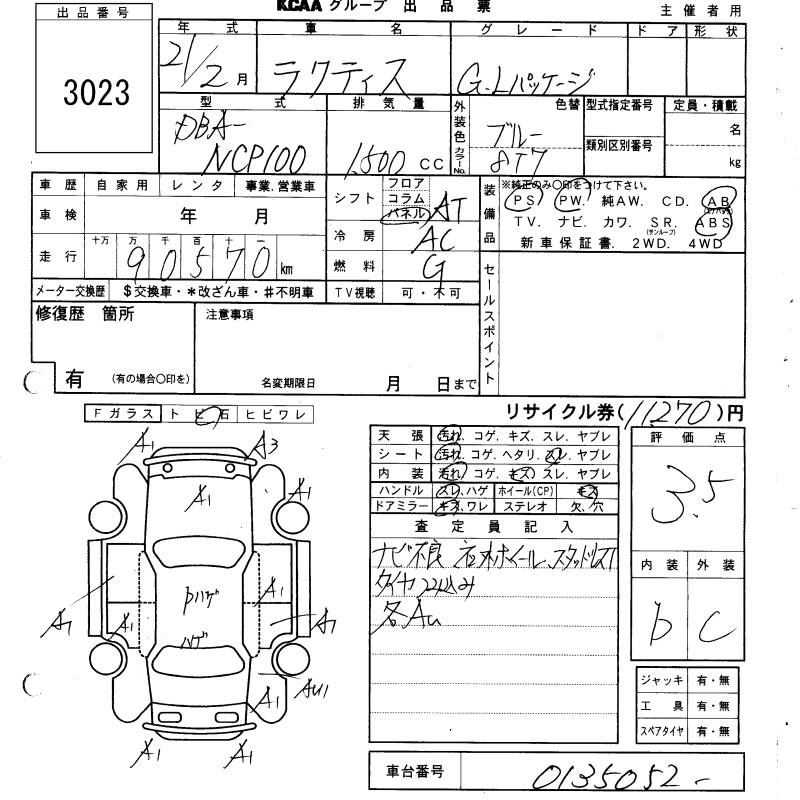 KCAA グループ 出品票
主催者用
出品番号
3023
年式 車名 グレード ドア 形状
21/2月 ラクティス G.Lパッケージ
型式 排気量 外装色 カラーNo. 色替 型式指定番号 定員・積載
DBA-
NCP100 1500 CC ブルー 8T7 類別区別番号 名 kg
車歴 自家用 レンタ 事業.営業車
車検 年 月
走行 十万 万 千 百 十 一
90570 km
メーター交換歴 $交換車・*改ざん車・#不明車
シフト フロア コラム パネル AT
冷房 AC
燃料 G
TV視聴 可・不可
装備品 ※純正のみ〇印をつけて下さい。
PS. PW. 純AW. CD. AB (エアバック)
TV. ナビ. カワ. SR. (サンルーフ) ABS
新車保証書. 2WD. 4WD
セールスポイント
修復歴 箇所 注意事項
有 (有の場合〇印を) 名変期限日 月 日まで
Fガラス トビ石 ヒビワレ
リサイクル券(11270)円
天張 汚れ. コゲ. キズ. スレ. ヤブレ
シート 汚れ. コゲ. ヘタリ. スレ. ヤブレ
内装 汚れ. コゲ. キズ. スレ. ヤブレ
ハンドル スレ. ハゲ ホイール(CP) キズ
ドアミラー キズ. ワレ ステレオ 欠. 穴
評価点
3.5
内装 外装
b C
査定員記入
ナビ不良 社外ホイール、スタッドレス
タイヤ
各Au
A1 A3
A1 A1
Pハゲ A1
A1 A1 A1
ハゲ
A1 AU1
A1 A1
ジャッキ 有・無
工具 有・無
スペアタイヤ 有・無
車台番号 0135052-